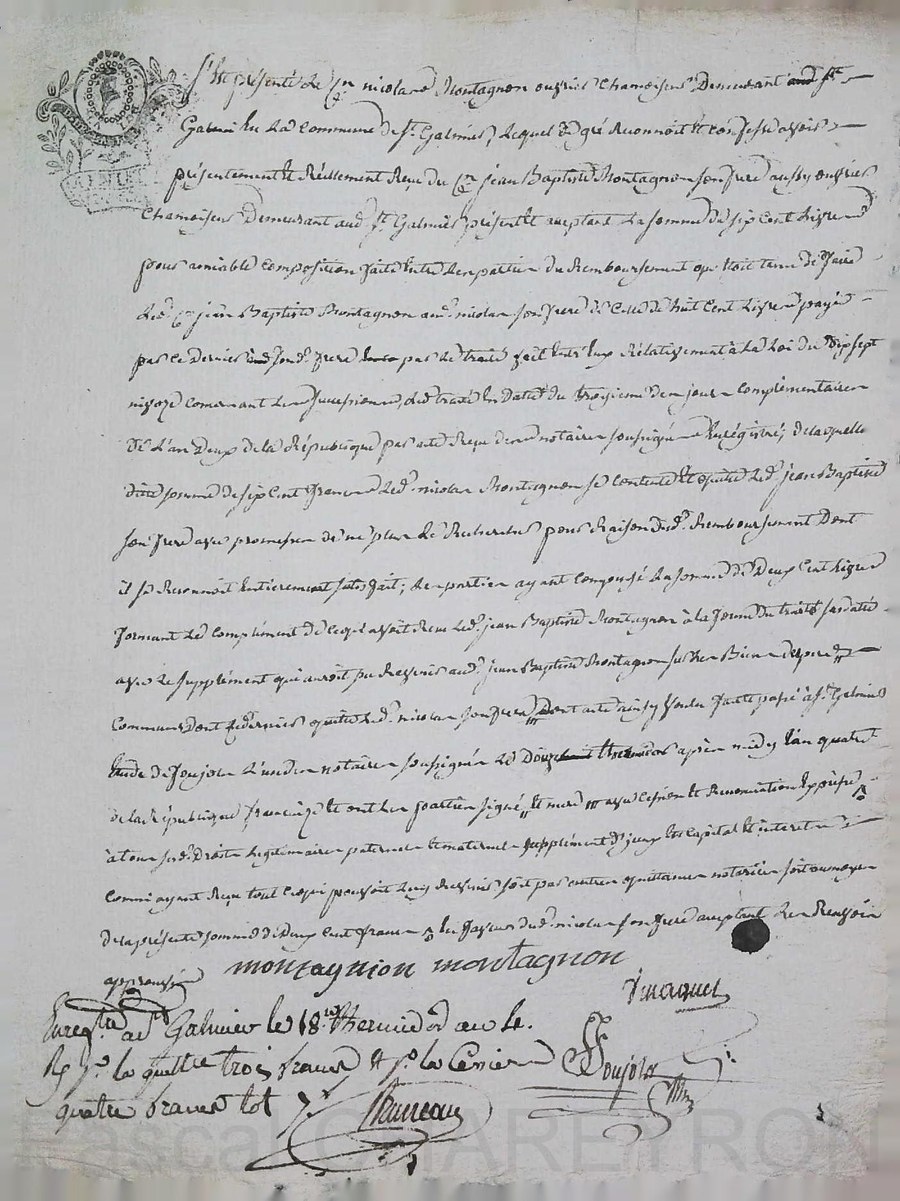 S'est présenté le Cen nicolas Montagnon ouvrier chamoiseur Demeurant aud St
Galmier en la Commune de St Galmier, lequel de gré reconnoit et confesse avoir
présentement et Réellement Reçu du Cen jean Baptiste Montagnon son frere aussy ouvrier
chamoiseur Demeurant aud. St Galmier présent et acceptant La somme de six Cent Livres
pour amiable composition faite entre les parties du Remboursement qu'etoit tenu de faire
Led. Cen jean Baptiste Montagnon aud. nicolas son frere de Celle de huit Cent Livres payée
par ce dernier aud sond. frere par le traité fait entr'eux Rélativement à La Loi du Dix sept
nivoze concernant les successions, led traité en Datte du troizieme des jours complémentaires
de L'an Deux de la République par acte Reçu des notaires soussignés Enregistré; de laquelle
ditte somme de six Cent francs Led. nicolas Montagnon se contente et quitte Led. jean Baptiste
son frere avec promesse de ne plus le Rechercher pour Raison dud. Remboursement Dont
il se Reconnoit entierement satisfait; les parties ayant composé La somme de Deux Cent Livres
formant Le complément de ce qu'avoit Reçu Led. jean Baptiste Montagnon à la forme du traité susdaté
avec Le supplément qui auroit pu Revenir aud. jean Baptiste Montagnon sur les Biens de pere et
Communs Dont ce dernier quitte Led. nicolas son frere, Dont acte ainsy voulu fait et passé à St Galmier
Etude de Soujole L'un des notaires soussignés Le après midy L'an quatre
de la République française et ont les parties signé, et mere avec Cession et Renonciation Expresse
à tous sesd. Droits Légitimaires paternels et maternels supplément d'iceux Es Capital et interets
comme ayant Reçu tout ce qui pouvoit Luy Revenir soit par autres quittances notariées soit au moyen
de la présente somme de Deux Cent francs En faveur dud. nicolas son frere acceptant Les Renvois
approuvés
montagnion montagnon
Soujole
Enregtré à St Galmier le 18 thermidor an 4.
Rç pr la quittce trois francs & pr la Cession
quatre francs tot 7.